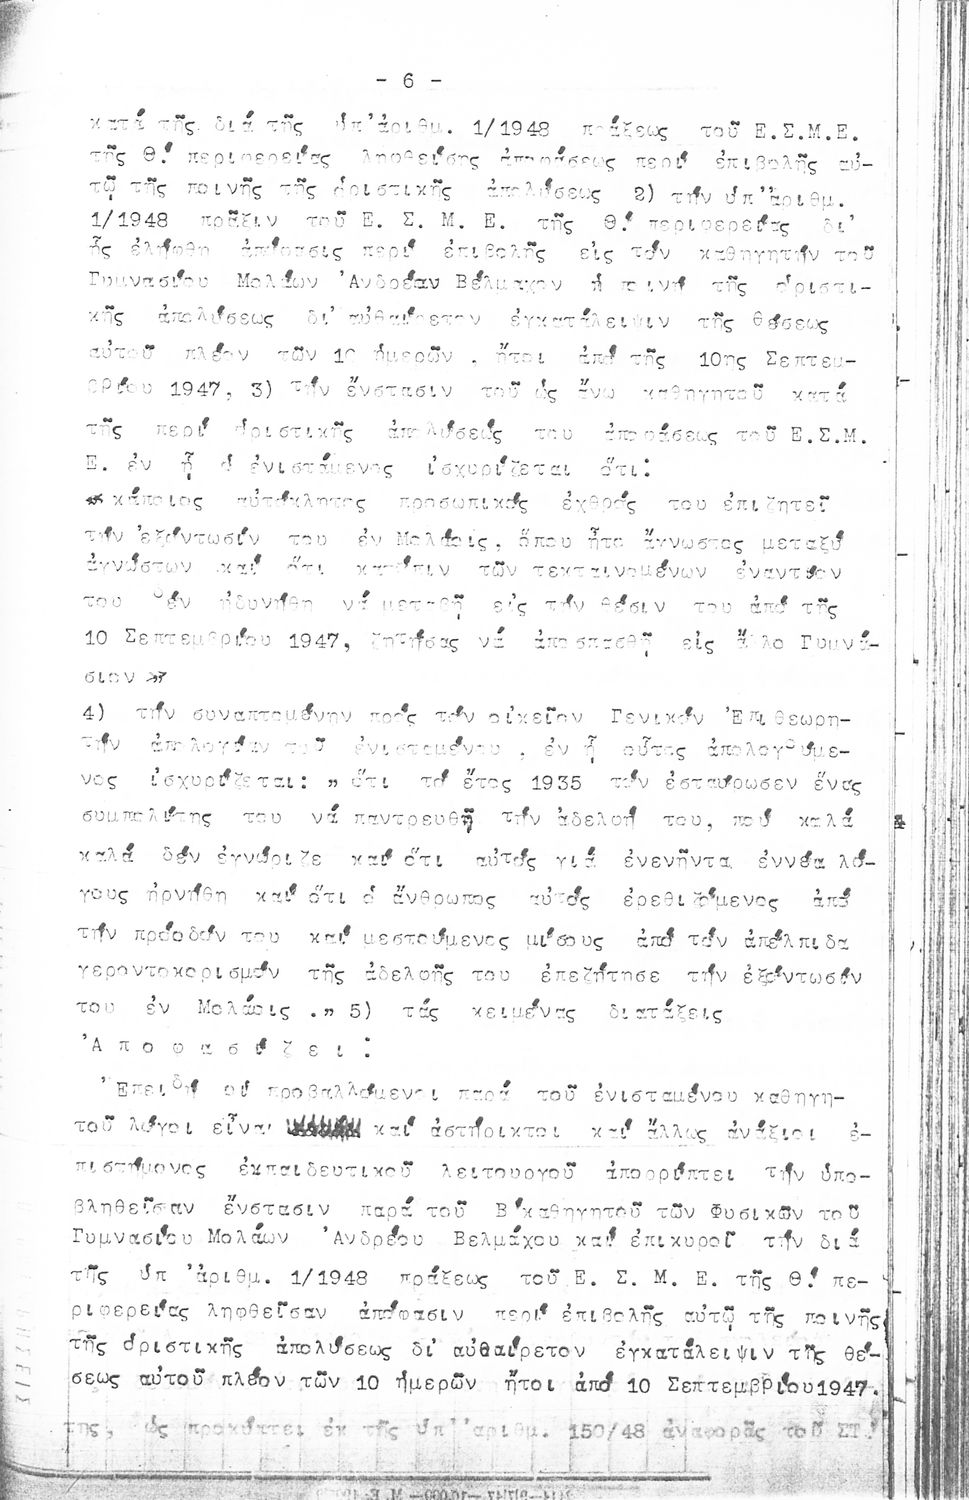 - 6 -
κατά τῆς διά τῆς ὑπ'ἀριθμ. 1/1948 πράξεως τοῦ Ε.Σ.Μ.Ε.
τῆς Θ.' περιφερείας ληφθείσης ἀποφάσεως περί ἐπιβολῆς αὐ-
τῷ τῆς ποινῆς τῆς ὁριστικῆς ἀπολύσεως 2) τήν ὑπ'ἀριθμ.
1/1948 πρᾶξιν τοῦ Ε. Σ. Μ. Ε. τῆς Θ.' περιφερείας δι'
ἧς ἐλήφθη ἀπόφασις περί ἐπιβολῆς εἰς τόν καθηγητήν τοῦ
Γυμνασίου Μολάων 'Ανδρέαν Βέλμαχον ἡ ποινή τῆς ὁριστι-
κῆς ἀπολύσεως δι' αὐθαίρετον ἐγκατάλειψιν τῆς θέσεως
αὐτοῦ πλέον τῶν 10 ἡμερῶν , ἤτοι ἀπό τῆς 10ης Σεπτεμ-
βρίου 1947, 3) τήν ἔνστασιν τοῦ ὡς ἄνω καθηγητοῦ κατά
τῆς περί ὁριστικῆς ἀπολύσεώς του ἀποφάσεως τοῦ Ε.Σ.Μ.
Ε. ἐν ᾗ ὁ ἐνιστάμενος ἰσχυρίζεται ὅτι:
« κάποιος αὐτόκλητος προσωπικός ἐχθρός του ἐπιζητεῖ
τήν 'εξόντωσίν του ἐν Μολάοις, ὅπου ἦτο ἄγνωστος μεταξύ
ἀγνώστων καί ὅτι κατόπιν τῶν τεκταινομένων ἐναντίον
του δέν ἠδυνήθη νά μεταβῇ εἰς τήν θέσιν του ἀπό τῆς
10 Σεπτεμβρίου 1947, ζητήσας νά ἀποσπασθῇ εἰς ἄλλο Γυμνά-
σιον »
4) τήν συναπτομένην πρός τόν οἰκεῖον Γενικόν 'Επιθεωρη-
τήν ἀπολογίαν τοῦ ἐνισταμένου , ἐν ᾗ οὗτος ἀπολογούμε-
νος ἰσχυρίζεται: " ὅτι τό ἔτος 1935 τόν ἐσταύρωσεν ἕνας
συμπολίτης του νά παντρευθῇ τήν ἀδελφή του, πού καλά
καλά δέν ἐγνώριζε καί ὅτι αὐτός γιά ἐνενῆντα ἐννέα λό-
γους ἠρνήθη καί ὅτι ὁ ἄνθρωπος αὐτός ἐρεθιζόμενος ἀπό
τήν πρόοδόν του καί μεστούμενος μίσους ἀπό τόν ἀπέλπιδα
γεροντοκορισμόν τῆς ἀδελφῆς του ἐπεζήτησε τήν ἐξόντωσίν
του ἐν Μολάοις ." 5) τάς κειμένας διατάξεις
'Α π ο φ α σ ί ζ ει :
'Επειδή οἱ προβαλλόμενοι παρά τοῦ ἐνισταμένου καθηγη-
τοῦ λόγοι εἶναι καί ἀστήρικτοι καί ἄλλως ἀνάξιοι ἐ-
πιστήμονος ἐκπαιδευτικοῦ λειτουργοῦ ἀπορρίπτει τήν ὑπο-
βληθεῖσαν ἔνστασιν παρά τοῦ Β'καθηγητοῦ τῶν Φυσικῶν τοῦ
Γυμνασίου Μολάων 'Ανδρέου Βελμάχου καί ἐπικυροῖ τήν διά
τῆς ὑπ 'ἀριθμ. 1/1948 πράξεως τοῦ Ε. Σ. Μ. Ε. τῆς Θ.' πε-
ριφερείας ληφθεῖσαν ἀπόφασιν περί ἐπιβολῆς αὐτῷ τῆς ποινῆς
τῆς ὁριστικῆς ἀπολύσεως δι' αὐθαίρετον ἐγκατάλειψιν τῆς θέ-
σεως αὐτοῦ πλέον τῶν 10 ἡμερῶν ἤτοι ἀπό 10 Σεπτεμβρίου1947.
της, ὡς προκύπτει ἐκ τῆς ὑπ'ἀριθμ. 150/48 ἀναφορᾶς τοῦ ΣΤ.'